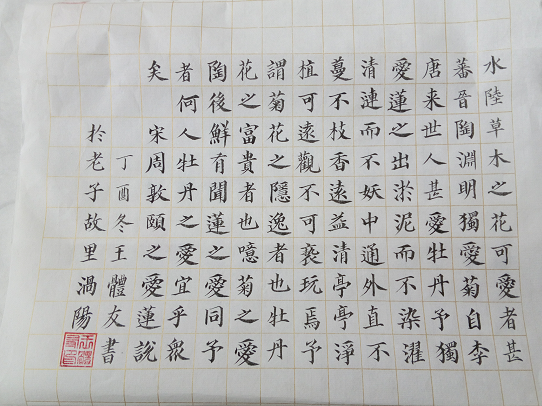 水陸草木之花可愛者甚
蕃晉陶淵明獨愛菊自李
唐来世人甚愛牡丹予獨
愛蓮之出淤泥而不染濯
清漣而不妖中通外直不
蔓不枝香遠益清亭亭淨
植可遠觀不可褻玩焉予
謂菊花之隱逸者也牡丹
花之富貴者也噫菊之愛
陶後鮮有聞蓮之愛同予
者何人牡丹之愛宜乎衆
矣 宋周敦頤之愛蓮說
丁酉冬王體友書
扵老子故里渦陽